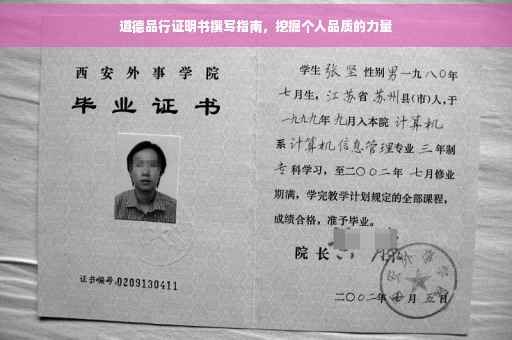 道德品行证明书撰写指南，挖掘个人品质的力量
西安外事学院
毕业证书
证书编号:0209130411
学生 张坚 性别 男 一九八〇年
七月生，江苏省 苏州 县(市)人，于
一九九九年 九月入本院 计算机
系 计算机信息管理 专业 三 年制
专 科学习，至二〇〇二年 七月修业
期满，学完教学计划规定的全部课程，
成绩合格，准予毕业。
院长
二〇〇二年 月 五 日